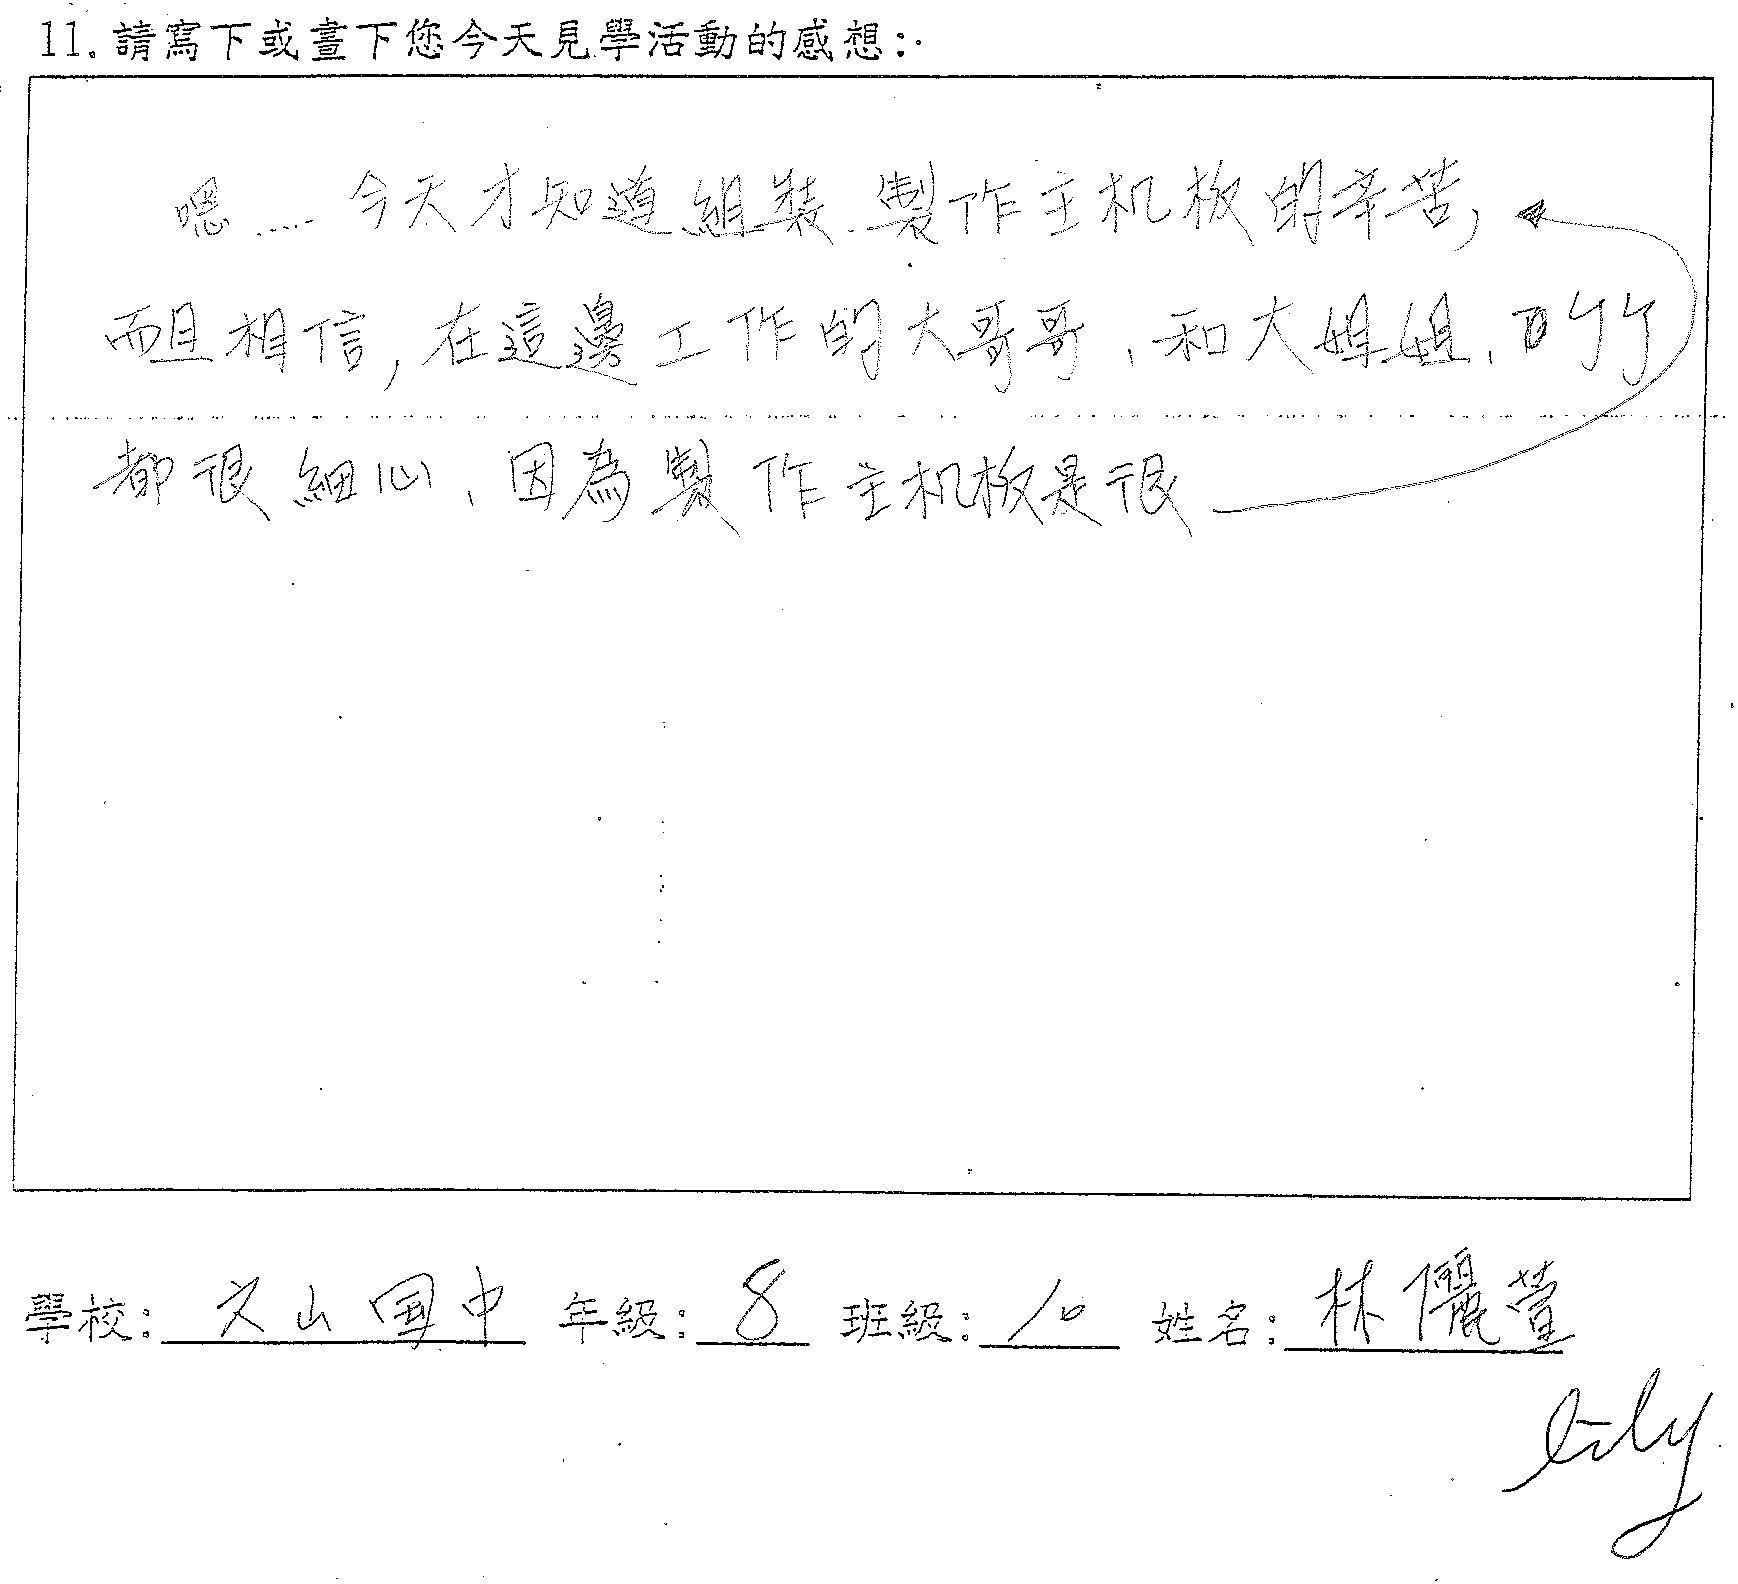 11.請寫下或畫下您今天見學活動的感想:
嗯..... 今天才知道組裝.製作主机板的辛苦,
而且相信,在這邊工作的大哥哥、和大姐姐、
都很細心、因為製作主机板是很
學校: 文山國中 年級: 8 班級: 10 姓名: 林儷萱
Lily